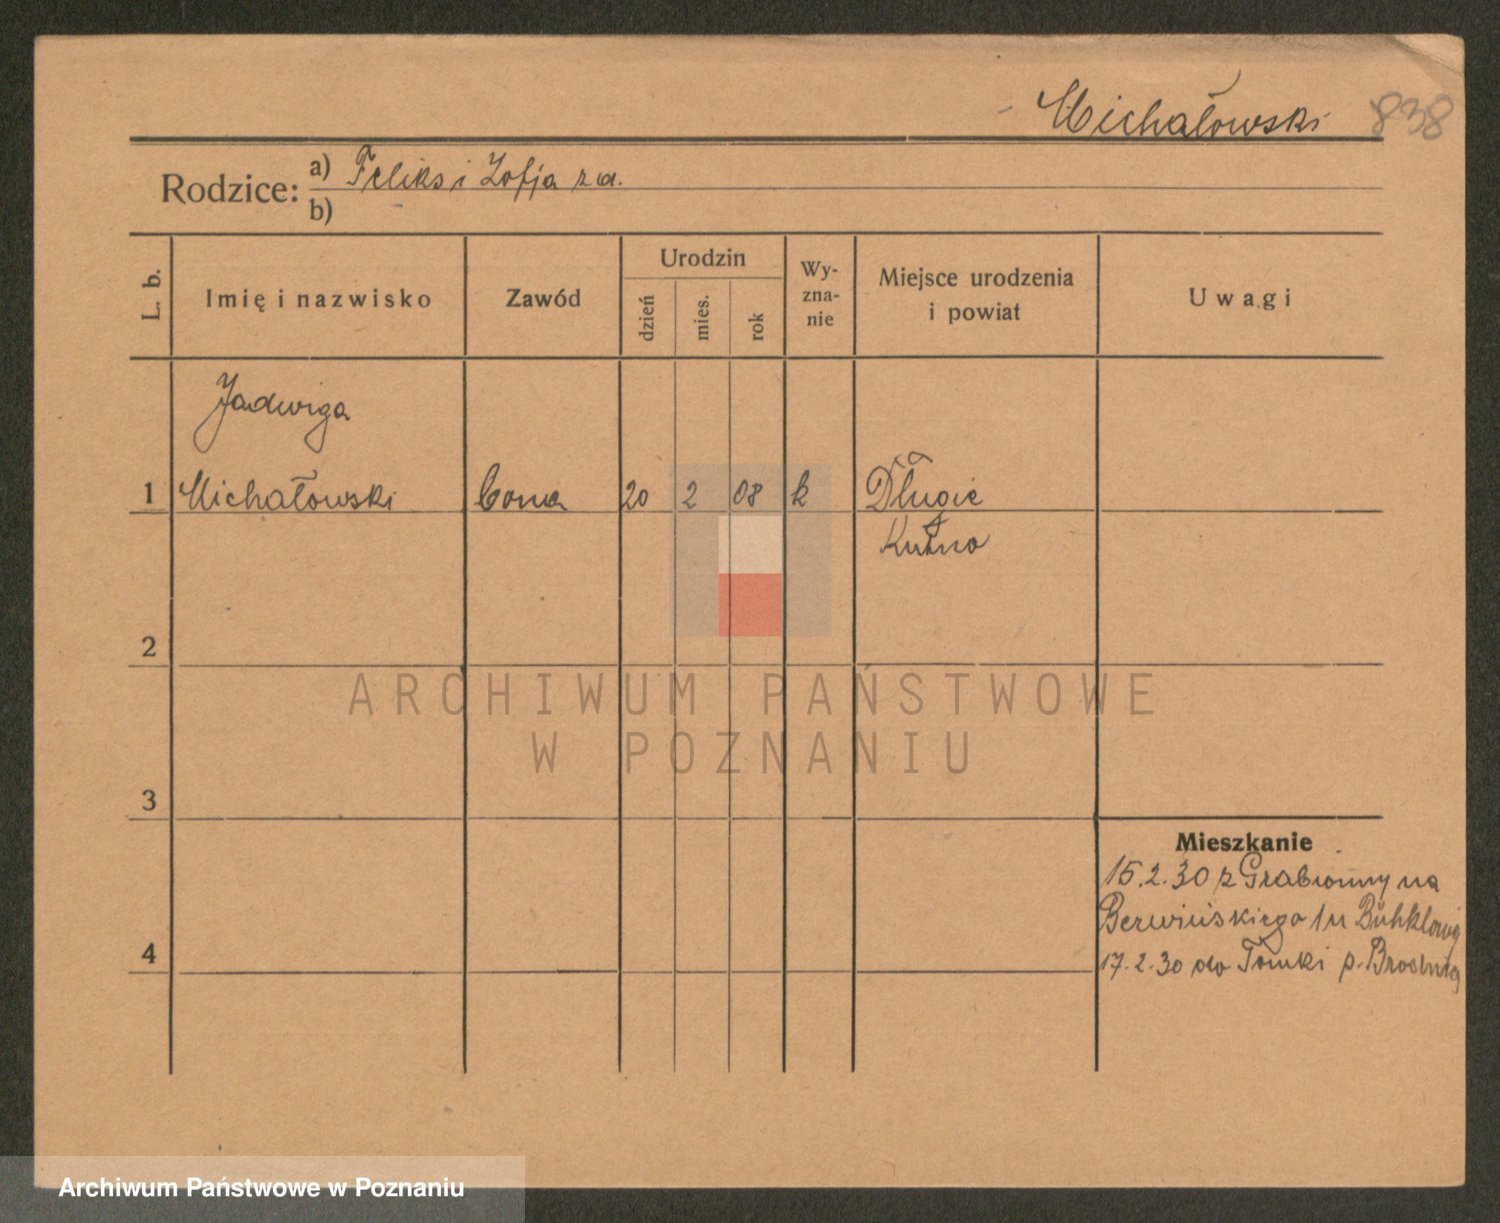 Michałowski 838
Rodzice: a) Feliks i Zofja z d.
b)
L. b. Imię i nazwisko Zawód Urodzin dzień mies. rok Wyzna-nie Miejsce urodzenia i powiat Uwagi
Jadwiga
1 Michałowski 20 2 08 k Długie
Kutno
2
ARCHIWUM PAŃSTWOWE
W POZNANIU
3
Mieszkanie
15.2.30 z na
Berwińskiego 1 u
4
17.2.30 do p.
Archiwum Państwowe w Poznaniu